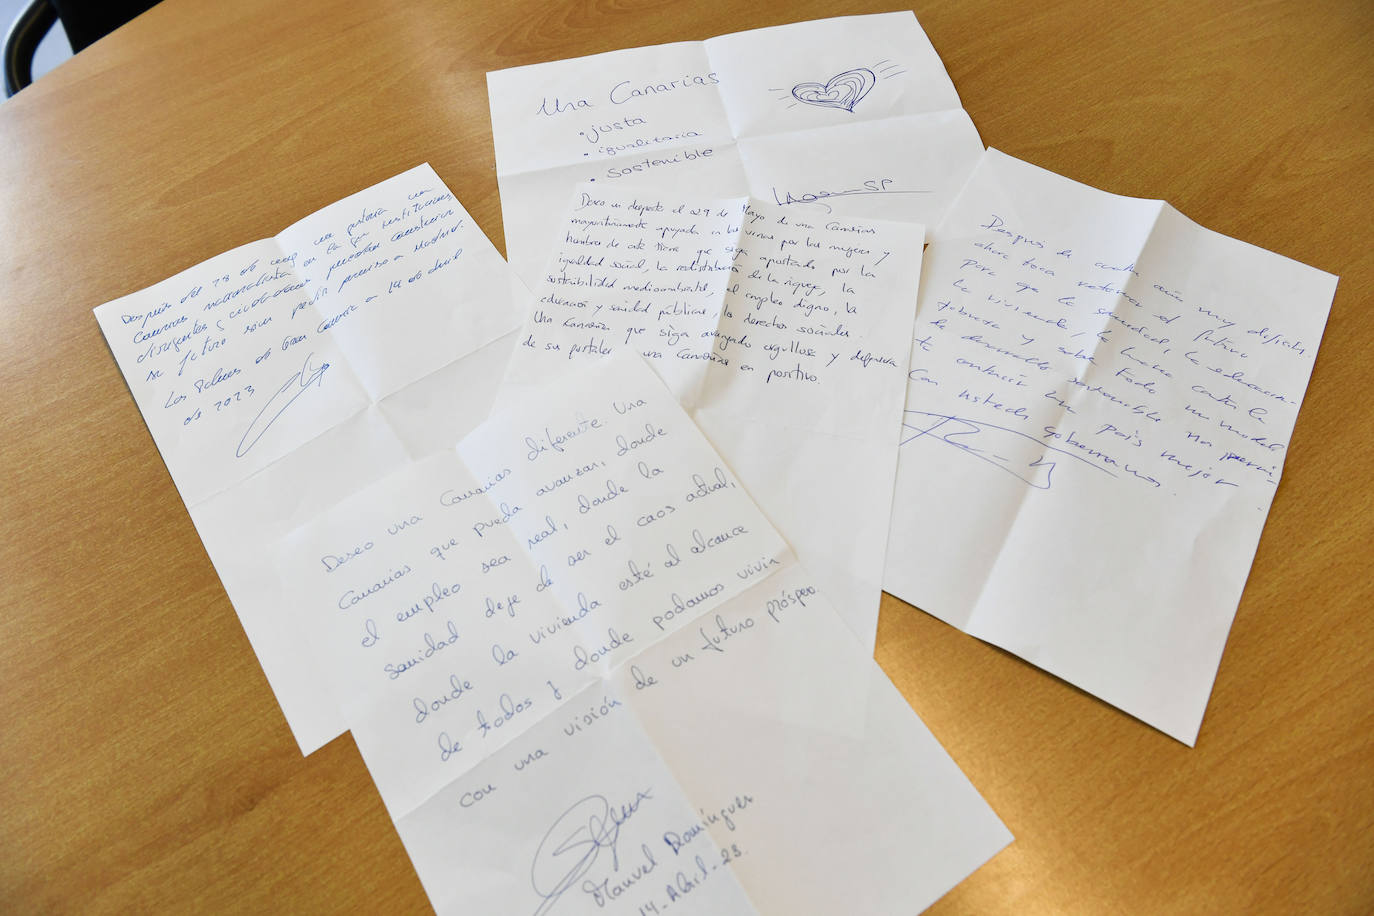 Una Canarias
• justa
• igualitaria
• sostenible
Después del 28 de mayo me gustaría una
Canarias nacionalista en la que instituciones,
dirigentes y ciudadanos puedan construir
su futuro sin pedir permiso a Madrid.
Las Palmas de Gran Canaria a 14 de abril
de 2023
Deseo un despertar el 29 de Mayo de una Canarias
mayoritariamente apoyada en las urnas por las mujeres y
hombres de esta tierra que siga apostado por la
igualdad social, la redistribución de la riqueza, la
sostenibilidad medioambiental, el empleo digno, la
educación y sanidad públicas, los derechos sociales.
Una Canarias que siga avanzado orgullosa y
de sus una Canarias en positivo.
Después de cuatro años muy difíciles
ahora toca retomar el futuro
para que la sanidad, la educación
la vivienda, la lucha contra la
pobreza y sobre todo un modelo
de desarrollo sostenible nos permi-
ta construir un país mejor
Con ustedes gobernamos.
Deseo una Canarias diferente. Una
Canarias que pueda avanzar, donde
el empleo sea real, donde la
sanidad deje de ser el caos actual,
donde la vivienda esté al alcance
de todos y donde podamos vivir
con una visión de un futuro próspero.
Manuel Domínguez
14-Abril-23.